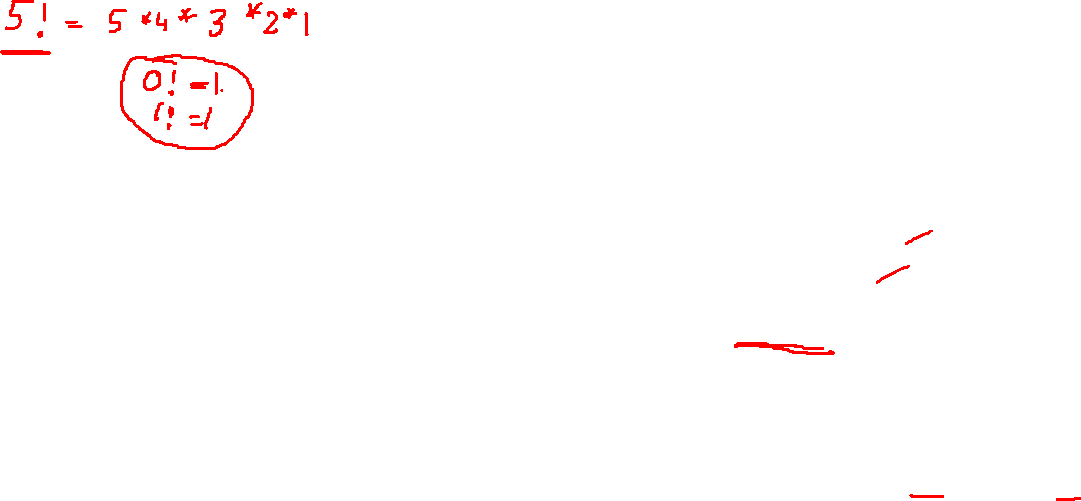 5! = 5 * 4 * 3 * 2 * 1
0! = 1.
1! = 1